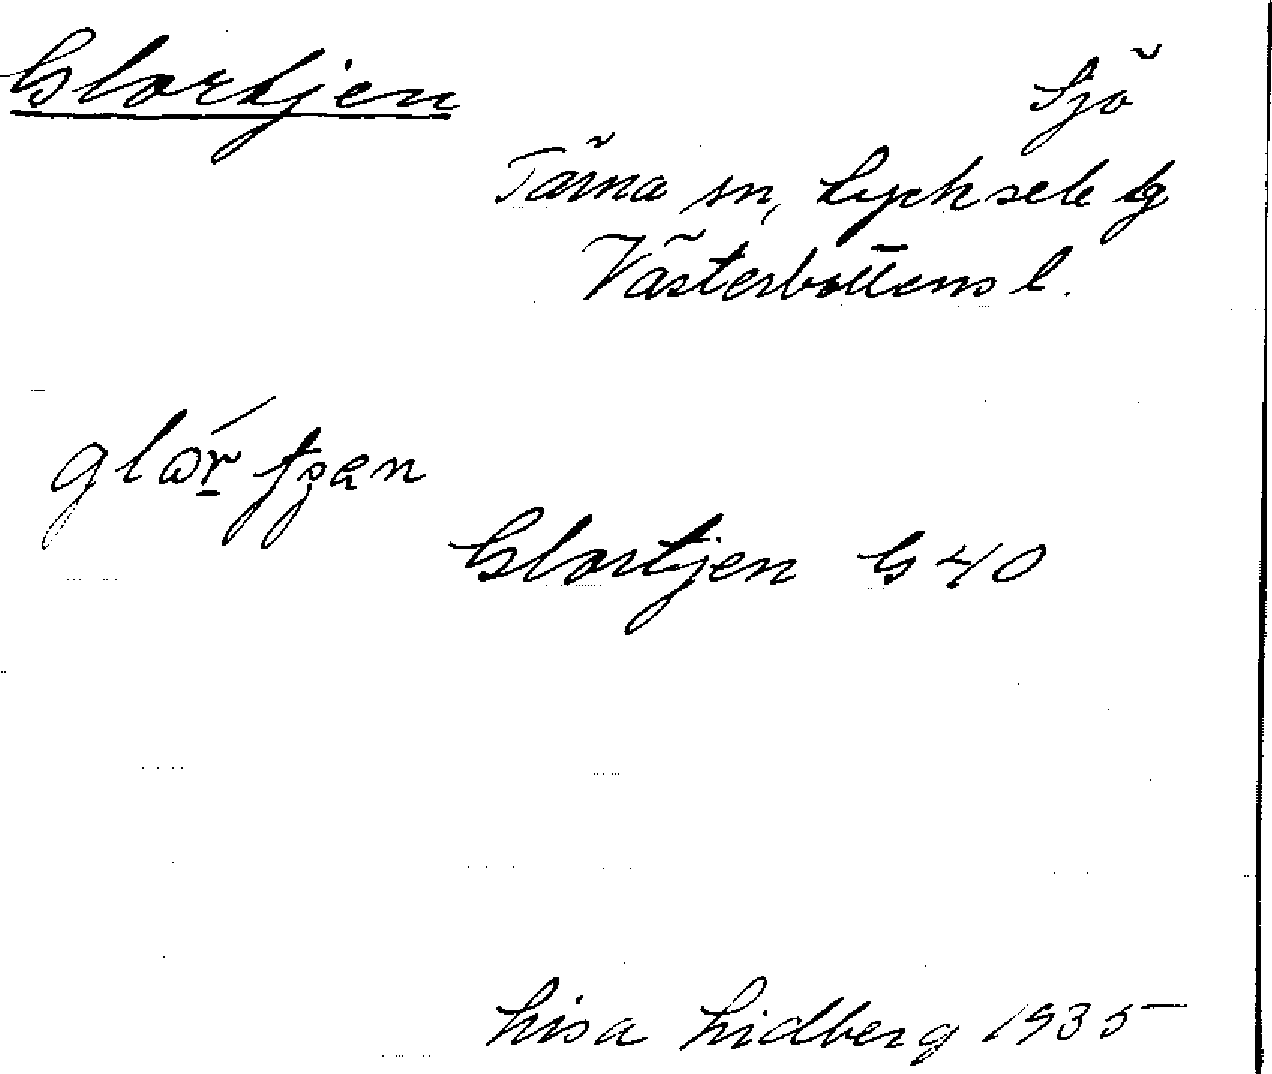 Glortjen
Sjö
Tärna sn, Lycksele lg
Västerbottens l.
Glortjen G 40
Lisa Lidberg 1935